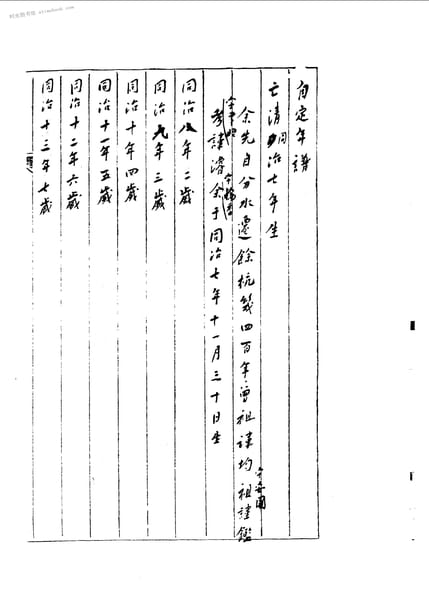 自定年譜
亡清同治七年生
余先自分水遷餘杭幾四百年曾祖諱均祖諱鑑
考諱濬余于同治七年十一月三十日生
同治八年二歲
同治九年三歲
同治十年四歲
同治十一年五歲
同治十二年六歲
同治十三年七歲